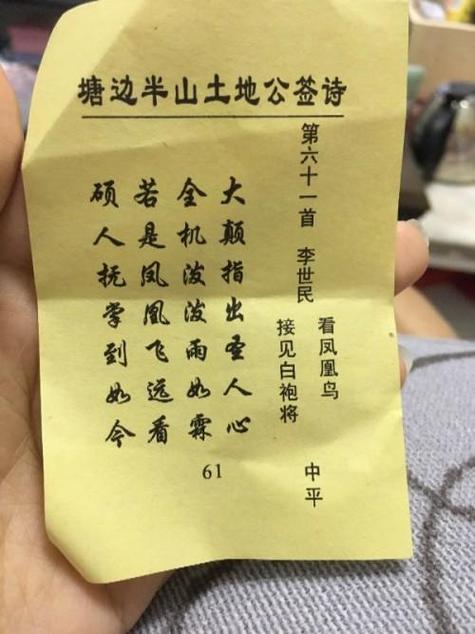 塘边半山土地公签诗
第六十一首 李世民 看凤凰鸟 接见白袍将 中平
大颠指出圣人心
全机泼泼雨如霖
若是凤凰飞远看
硕人抚掌到如今
61